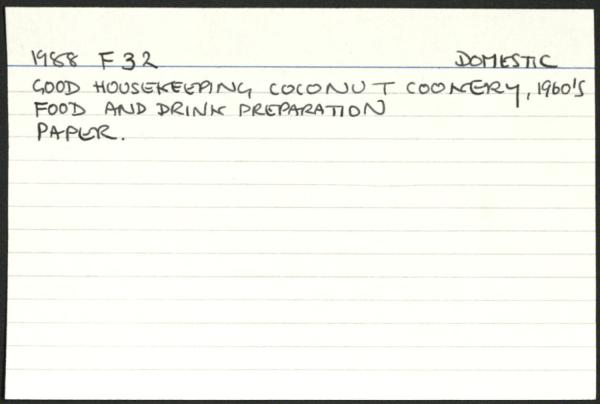 1988 F 32 DOMESTIC
GOOD HOUSEKEEPING COCONUT COOKERY, 1960's
FOOD AND DRINK PREPARATION
PAPER.